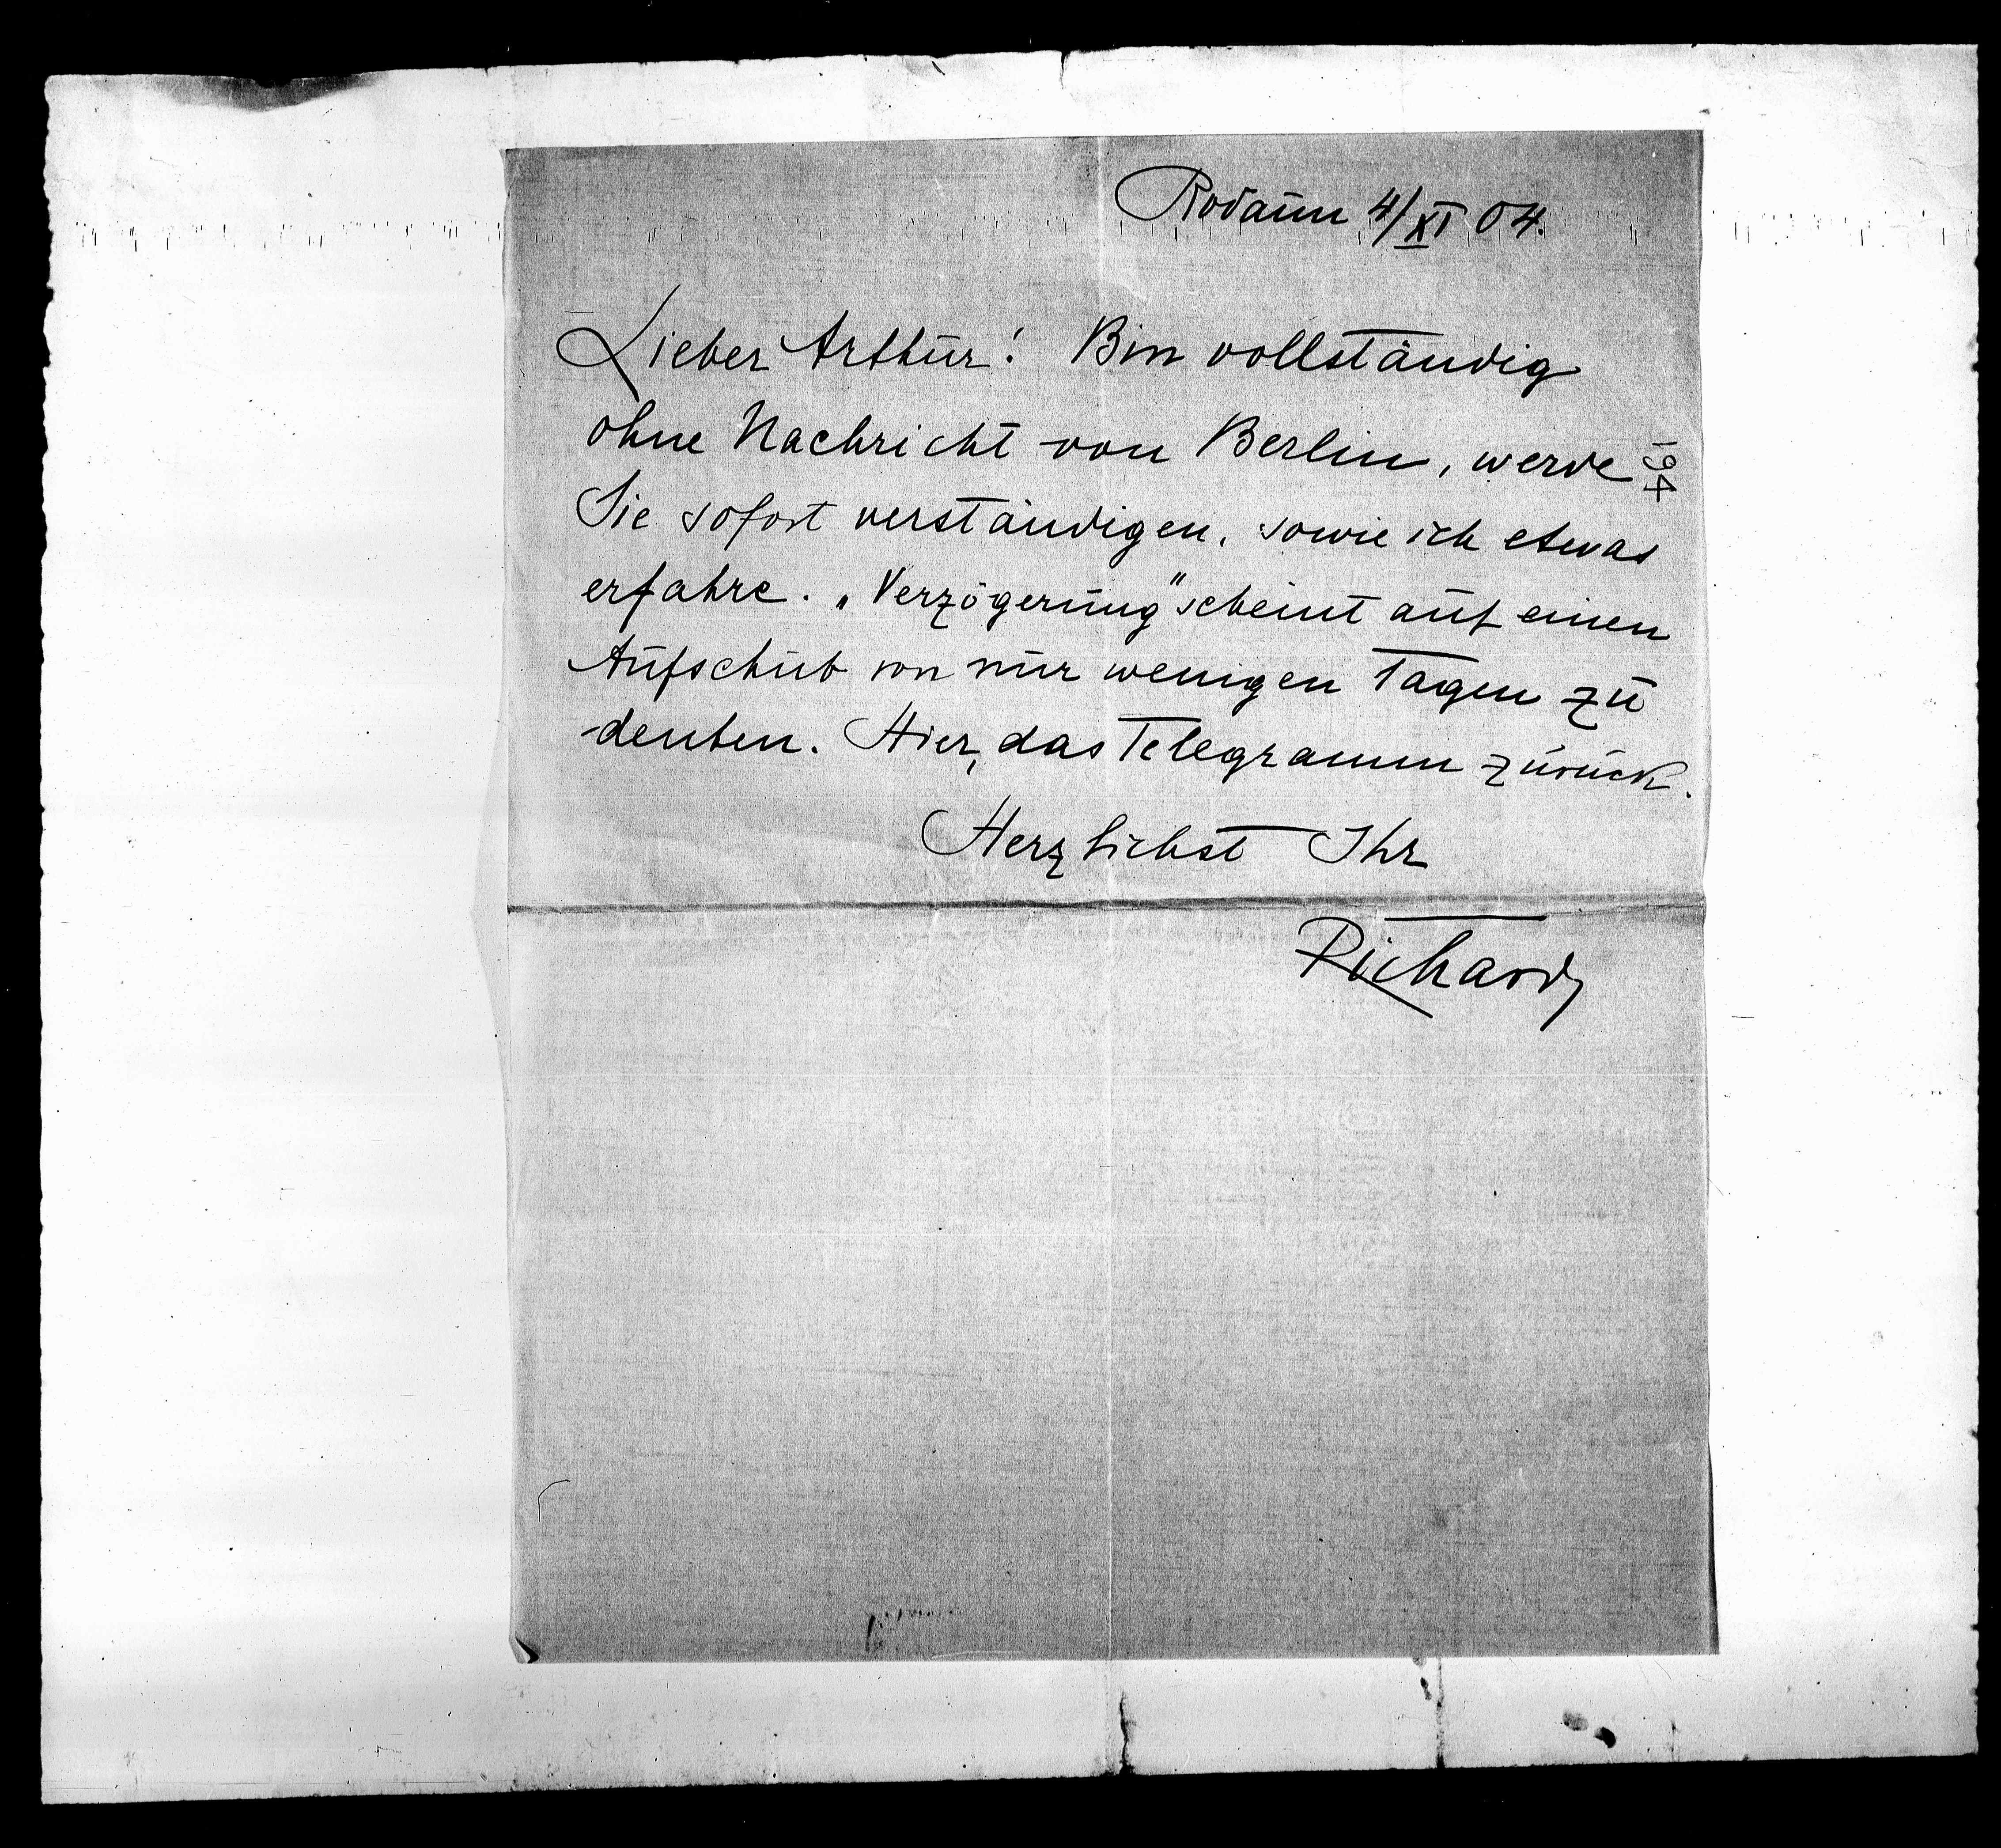 Rodaun 4/XI 04.
Lieber Arthur! Bin vollständig
ohne Nachricht von Berlin, werde
194
Sie sofort verständigen, sowie ich etwas
erfahre. „Verzögerung" scheint auf einen
Aufschub von nur wenigen Tagen zu
deuten. Hier, das Telegramm zurück.
Herzlichst Ihr
Richard